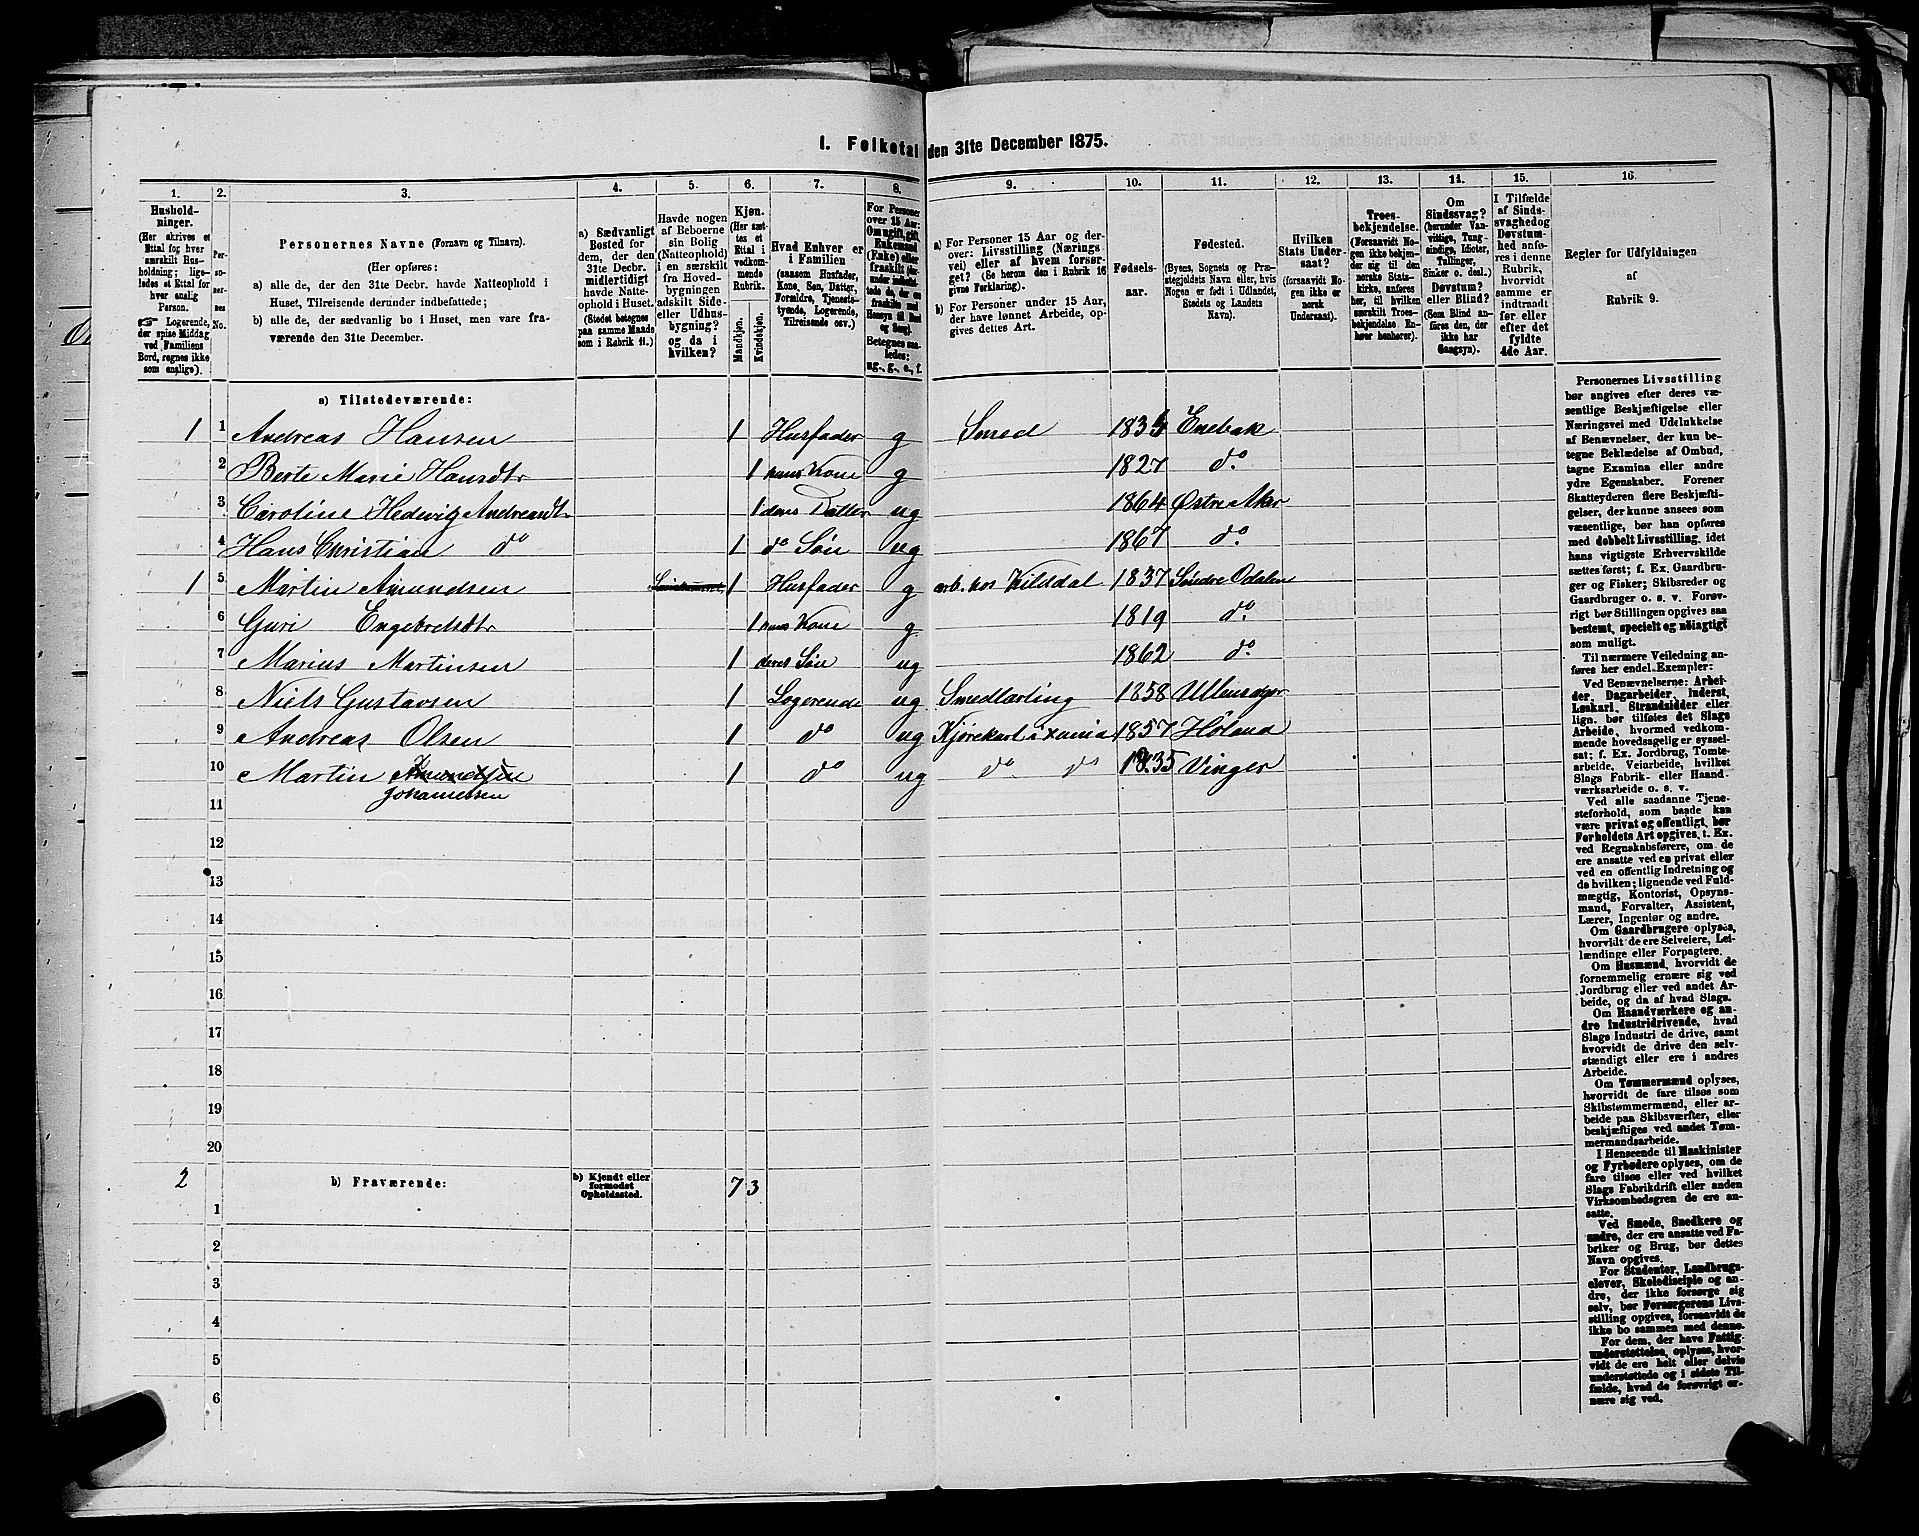 1. Folketal den 31te December 1875.
1. 2. 3. 4. 5. 6. 7. 8. 9. 10. 11. 12. 13. 14. 15. 16.
Hushold-
ninger.
(Her skrives et
Ettal for hver
særskilt Hus-
holdning; lige-
ledes et Ettal for
hver enslig
Person.
☞ Logerende,
der spise Middag
ved Familiens
Bord, regnes ikke
som enslige).
Per-
so-
ner-
nes
No.
Personernes Navne (Fornavn og Tilnavn).
(Her opføres:
a) alle de, der den 31te Decbr. havde Natteophold i
Huset, Tilreisende derunder indbefattede;
b) alle de, der sædvanlig bo i Huset, men vare fra-
værende den 31te December.
a) Sædvanligt
Bosted for
dem, der den
31te Decbr.
midlertidigt
havde Natte-
ophold i Huset.
(Stedet betegnes
paa samme Maade
som i Rubrik 11.)
Havde nogen
af Beboerne
sin Bolig
(Natteophold)
i en særskilt
fra Hoved-
bygningen
adskilt Side-
eller Udhus-
bygning?
og da i
hvilken?
Kjøn.
(Her sæt-
tes et
Ettal i
vedkom-
mende
Rubrik.
Mandkjøn.
Kvindekjøn.
Hvad Enhver er
i Familien
(saasom Husfader,
Kone, Søn, Datter,
Forældre, Tjeneste-
tyende, Logerende,
Tilreisende osv.)
For Personer
over 15 Aar:
Om ugift, gift,
Enkemand
(Enke) eller
fraskilt
Betegnes saa-
ledes:
ug., g., e., f.
a) For Personer 15 Aar og der-
over: Livsstilling (Nærings-
vei) eller af hvem forsør-
get? (Se herom den i Rubrik 16
givne Forklaring).
b) For Personer under 15 Aar,
der have lønnet Arbeide, op-
gives dettes Art.
Fødsels-
aar.
Fødested.
(Byens, Sognets og Præ-
stegjeldets Navn eller, hvis
Nogen er født i Udlandet,
Stedets og Landets
Navn).
Hvilken
Stats Under-
saat?
(forsaavidt No-
gen ikke er
norsk
Undersaat).
Troes-
bekjendelse.
(Forsaavidt No-
gen ikke bekjen-
der sig til den
norske Stats-
kirke, anføres
her, til hvilken
særskilt Troes-
bekjendelse En-
hver henhører).
Om
Sindssvag?
(herunder Van-
vittige, Tung-
sindige, Idioter,
Tullinger,
Sinker o. desl.)
Døvstum?
eller Blind?
(Som Blind an-
føres den, der
ikke har
Gangsyn).
I Tilfælde
af Sinds-
svaghed og
Døvstum-
hed anfø-
res i denne
Rubrik,
hvorvidt
samme er
indtraadt
før eller
efter det
fyldte
4de Aar.
Regler for Udfyldningen
af
Rubrik 9.
a) Tilstedeværende:
1 1 Andreas Hansen 1 Husfader g Smed 1834 Enebak
2 Berte Marie Hansdtr 1 hans Kone g 1827 do.
3 Caroline Hedevig Andreasdt. 1 deres Datter ug 1864 Østre Aker
4 Hans Christian do 1 do Søn ug 1867 do.
1 5 Martin Amundsen 1 Husfader g arb. hos Kilsdal 1837 Søndre Odalen
6 Guri Engebretsdtr 1 hans Kone g 1819 do.
7 Marius Martinsen 1 deres Søn ug 1862 do.
8 Niels Gustavsen 1 Logerende ug Smedlærling 1858 Ullensager
9 Andreas Olsen 1 do ug Kjørekarl i Xania 1857 Høland
10 Martin Amundsen 1 do ug do do 1835 Vinger
Johannessen
11
12
13
14
15
16
17
18
19
20
2 b) Fraværende: b) Kjendt eller
formodet
Opholdssted. 7 3
1
2
3
4
5
6
Personernes Livsstilling
bør angives efter deres væ-
sentlige Beskjæftigelse eller
Næringsvei med Udelukkelse
af Benævnelser, der kun be-
tegne Beklædelse af Ombud,
tagne Examina eller andre
ydre Egenskaber. Forener
Skatteyderen flere Beskjæfti-
gelser, der kunne ansees som
væsentlige, bør han opføres
med dobbelt Livsstilling, idet
hans vigtigste Erhvervskilde
sættes først; f. Ex. Gaardbru-
ger og Fisker; Skibsreder og
Gaardbruger o. s. v. Forøv-
rigt bør Stillingen opgives saa
bestemt, specielt og nøiagtigt
som muligt.
Til nærmere Veiledning an-
føres her endel Exempler:
Ved Benævnelserne: Arbei-
der, Dagarbeider, Inderst,
Løskarl, Strandsidder eller
lign. bør tilføies det Slags
Arbeide, hvormed vedkom-
mende hovedsagelig er syssel-
sat; f. Ex. Jordbrug, Tomte-
arbeide, Veiarbeide, hvilket
Slags Fabrik- eller Haand-
værksarbeide o. s. v.
Ved alle saadanne Tjene-
steforhold, som baade kan
være privat og offentligt, bør
Forholdets Art opgives, t. Ex.
ved Regnskabsførere, om de
ere ansatte ved en privat eller
ved en offentlig Indretning og
da hvilken; lignende ved Fuld-
mægtig, Kontorist, Opsyns-
mand, Forvalter, Assistent,
Lærer, Ingeniør og andre.
Om Gaardbrugere oplyses,
hvorvidt de ere Selveiere, Lei-
lændinge eller Forpagtere.
Om Husmænd, hvorvidt de
fornemmelig ernære sig ved
Jordbrug eller ved andet Ar-
beide, og da af hvad Slags.
Om Haandværkere og an-
dre Industridrivende, hvad
Slags Industri de drive, samt
hvorvidt de drive den selv-
stændigt eller ere i andres
Arbeide.
Om Tømmermænd oplyses,
hvorvidt de fare tilsøs som
Skibstømmermænd, eller ar-
beide paa Skibsværfter, eller
beskjæftiges ved andet Tøm-
mermandsarbeide.
I Henseende til Maskinister
og Fyrbødere oplyses, om de
fare tilsøs eller ved hvilket
Slags Fabrikdrift eller anden
Virksomhedsgren de ere an-
satte.
Ved Smede, Snedkere og
andre, der ere ansatte ved Fa-
briker og Brug, bør dettes
Navn opgives.
For Studenter, Landbrugs-
elever, Skoledisciple og an-
dre, der ikke forsørge sig
selv, bør Forsørgerens Livs-
stilling opgives, forsaavidt de
ikke bo sammen med denne.
For dem, der have Fattig-
understøttelse, oplyses, hvor-
vidt de ere helt eller delvis
understøttede og i sidste Til-
fælde, hvad de forøvrigt er-
nære sig ved.